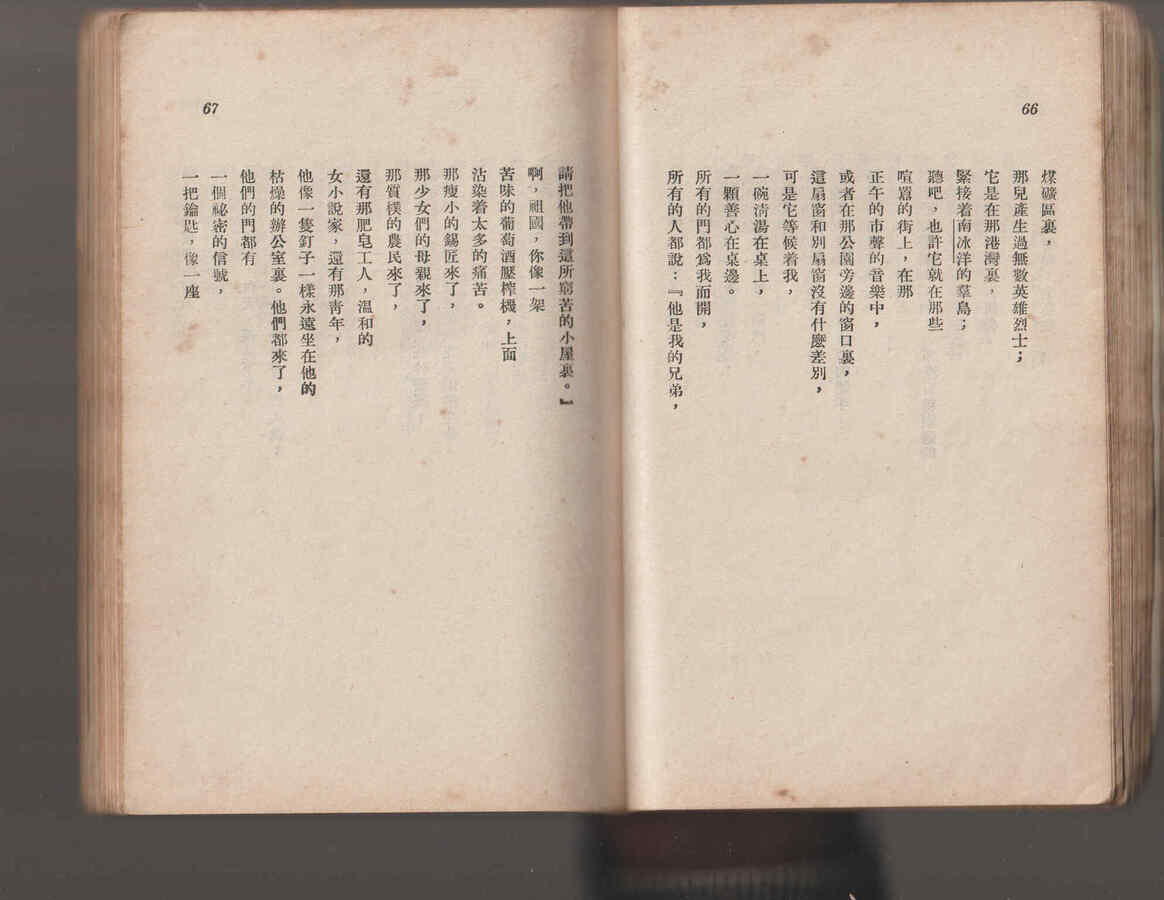 66
煤礦區裏，
那兒產生過無數英雄烈士；
它是在那港灣裏，
緊接着南冰洋的羣島；
聽吧，也許它就在那些
喧囂的街上，在那
正午的市聲的音樂中，
或者在那公園旁邊的窗口裏，
這扇窗和別扇窗沒有什麼差別，
可是它等候着我，
一碗淸湯在桌上，
一顆善心在桌邊。
所有的門都爲我而開，
所有的人都說：『他是我的兄弟，
67
請把他帶到這所窮苦的小屋裏。』
啊，祖國，你像一架
苦味的葡萄酒壓榨機，上面
沾染着太多的痛苦。
那瘦小的錫匠來了，
那少女們的母親來了，
那質樸的農民來了，
還有那肥皂工人，溫和的
女小說家，還有那靑年，
他像一隻釘子一樣永遠坐在他的
枯燥的辦公室裏。他們都來了，
他們的門都有
一個祕密的信號，
一把鑰匙，像一座